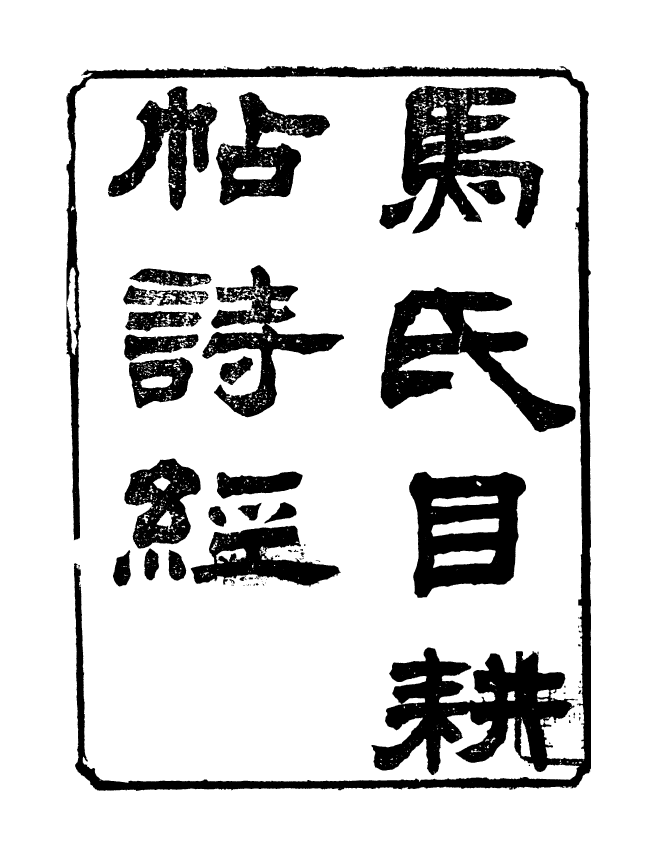 馬氏目耕
帖詩經